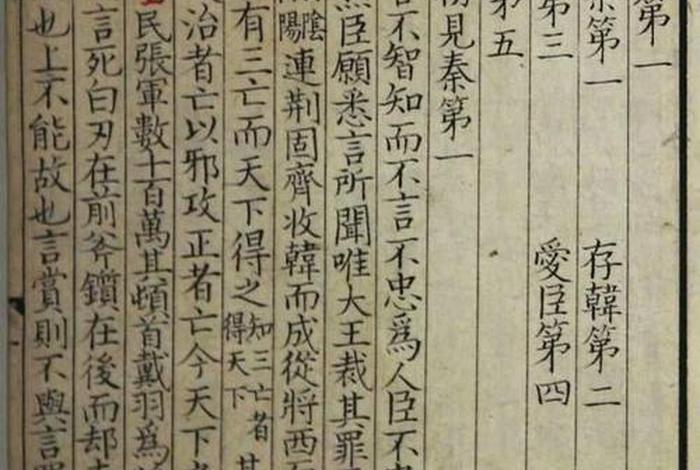 第一
秦第一
存韓第二
第三
愛臣第四
第五
初見秦第一
言不智知而不言不忠爲人臣不忠
然臣願悉言所聞唯大王裁其罪
陰
陽連荆固齊收韓而成從將西
有三亡而天下得之知三亡者
得天下
以治者亡以邪攻正者亡今天下
民張軍數十百萬其頓首戴羽爲
言死白刃在前斧鑕在後而却
也上不能故也言賞則不與言